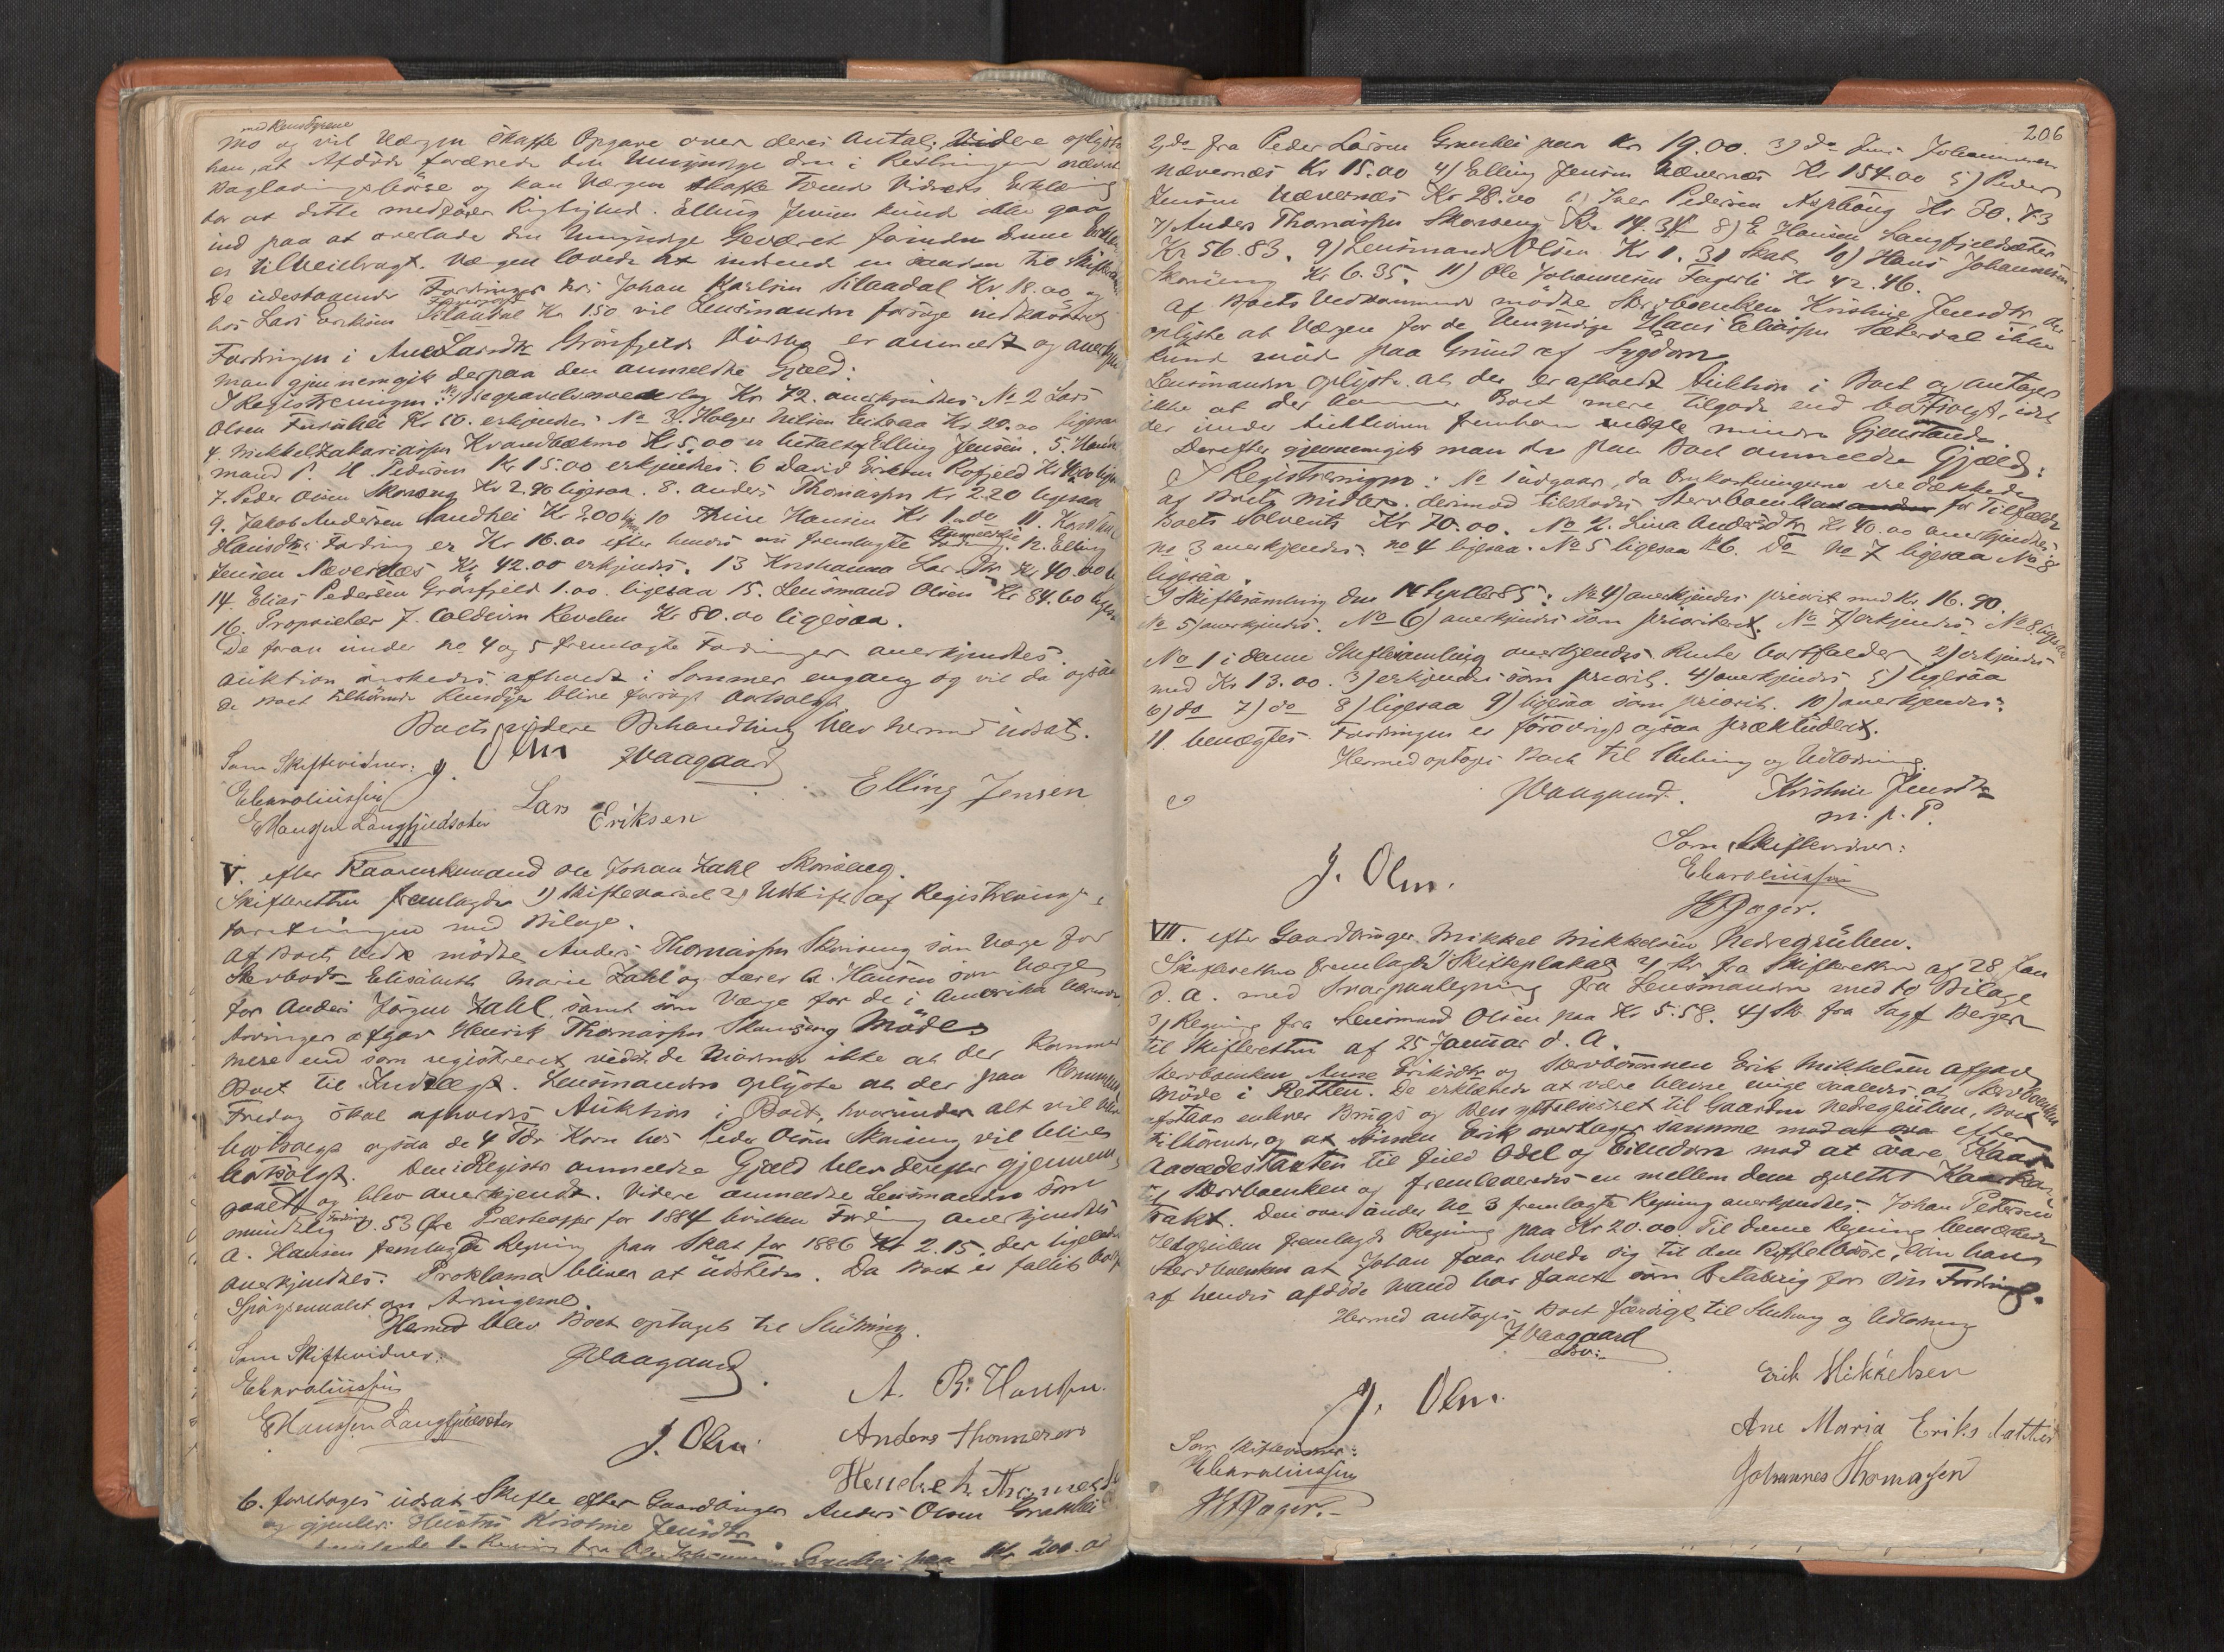 med Rensdyrene
Mo og vil Værgen skaffe Opgave over deres Antal. Videre oplyste
han, at Afdøde forærede den Umyndige den i Registreringen nævnte
Bagladningsbøsse og kan Værgen skaffe Erklæring
for at dette medfører Rigtighed. Elling Jensen kunde ikke gaa
ind paa at overlade den Umyndige Geværet forinden denne
er tilveiebragt. Værgen lovede at indsende en saadan til Skifteretten
De udestaaende Fordringer hos Johan Karlsen Kr 18.00 og
hos Lars Eriksen Kr 150 vil Lensmanden forsøge inddrevet
Fordringen i Ane Larsdtr Grønfjeld Dødsbo er anmeldt og
Man gjennemgik derpaa den anmeldte Gjæld:
I Registreringen: No 1 Begravelsesomk Kr 72. anerkjendtes No 2 Lars
Olsen Kr 10. erkjendtes No 3. Holger Nilsen Kr 20.00 ligesaa
4. Mikkel Zakariassen Kvandbækmo Kr 5.00 er betalt af Elling Jensen. 5. Handels
mand P. M. Pedersen Kr 15.00 erkjendtes. 6 David Eriksen Rofjeld Kr
7. Peder Olsen Skonseng Kr 2.90 ligesaa. 8. Anders Thomassen Kr 2.20 ligesaa
9. Jakob Andersen Sandhei Kr 2.00 10 Trine Hansen Kr 1.00 11.
Hansdtrs Fordring er Kr 16.00 efter hendes nu fremlagte anmeldte 12. Elling
Jensen Nævernæs Kr 42.00 erkjendes. 13 Kristianna Larsdtr Kr 40.00
14. Elias Pedersen Grønfjeld 1.00. ligesaa 15. Lensmand Olsen Kr 84.60 ligesaa
16. Proprietær J. Coldevin Kr 80.00 ligesaa.
De foran under No 4 og 5 fremlagte Fordringer anerkjendtes.
Auktion ønskedes afholdt i Sommer engang og vil da ogsaa
de Boet tilhørende Rensdyr blive forsøgt bortsolgt
Boets videre Behandling blev hermed udsat.
Som Skiftevidner: J. Olsen JVaagaard
EKarolinssen Elling Jensen
EHanssen Langfjeldsæter Lars Eriksen
V. efter Kaarenkemand Ole Johan Zahl Skonseng.
Skifteretten fremlagde 1) Skiftevarsel 2) Udskrift af Registrerings-
forretningen med Bilage.
Af Boets Vedk mødte Anders Thomassen Skonseng som Værge for
Stervbods Elisabeth Marie Zahl og Lærer A. Hansen som Værge
for Anders Jørgen Zahl, samt som Værge for de i Amerika værende
Arvinger afgav Henrik Thomassen Skonseng Møde.
Mere end som registreret vidste de Mødende ikke at der kommer
Boet til Indtægt. Lensmanden oplyste at der paa kommende
Fredag skal afholdes Auktion i Boet, hvorunder alt vil blive
bortsolgt ogsaa de 4 Tdr Korn hos Peder Olsen Skonseng vil blive
bortsolgt. Den i Registr anmeldte Gjæld blev derefter gjennem-
gaaet og blev anerkjendt. Videre anmeldte Lensmanden som
mundtlig Fordring 0.53 Øre for 1884 hvilken Fordring anerkjendtes
A. Hansen fremlagde Regning paa Skat for 1886 Kr 2.15. der ligeledes
anerkjendtes. Proklama bliver at udstede. Da Boet er fallit
Spørgsmaalet om Arvingerne.
Hermed blev Boet optaget til Slutning.
Som Skiftevidner: JVaagaard.
EKarolinssen A. B. Hanssen.
EHanssen Langfjeldsæter J. Olsen. Anders Thommesen
Hendrek Thommesen
6. foretoges udsat Skifte efter Gaardbruger Anders Olsen Grønhei
og gjenlev. Hustru Kristine Jensdtr.
Regning fra Ole Johannesen Grønhei paa Kr 200.00
206
2) do fra Peder Larsen Grønhei paa Kr 19.00. 3) do Jens Johannesen
Nævernæs Kr 15.00 4) Elling Jensen Nævernæs Kr 154.00 5) Peder
Jensen Nævernæs Kr 28.00 6) Iver Pedersen Asphaug Kr 30.73
7) Anders Thomassen Skonseng Kr 14.34 8) E Hansen Langfjeldsæter
Kr 56.83. 9) Lensmand Olsen Kr 1.31 Skat 10) Hans Johannesen
Skonseng Kr 6.35. 11) Ole Johannesen Fagerli Kr 42.46.
Af Boets Vedkommende mødte Stervboenken Kristine Jensdtr, der
oplyste at Værgen for de Umyndige Hans Eliassen Sæterdal ikke
kunde møde paa Grund af Sygdom.
Lensmanden oplyste at der er afholdt Auktion i Boet og antages
ikke at der kommer Boet mere tilgode end bortsolgt, idet
der under Auktionen fremkom nogle mindre Gjenstande.
Derefter gjennemgik man den paa Boet anmeldte Gjæld:
I Registreringen: No 1 udgaar, da Omkostningerne ere dækkede
af Boets Midler. derimod tilstodes Stervboenken for Tilfælde
Boets Solvents Kr 70.00. No 2. Lina Andersdtr Kr 40.00 anerkjendtes
No 3 anerkjendes. No 4 ligesaa. No 5 ligesaa No 6. do No 7 ligesaa No 8
ligesaa.
I Skiftesamling den 14 Septbr 85: No 4) anerkjendes priorit med Kr. 16.90.
No 5) anerkjendes. No 6) anerkjendes som prioriteret. No 7) erkjendes. No 8 ligesaa
No 1 i denne Skiftesamling anerkjendes Renter bortfalder 2) erkjendes
med Kr 13.00. 3) erkjendes som priorit. 4) anerkjendes 5) ligesaa
6) do 7) do 8) ligesaa 9) ligesaa som priorit. 10) anerkjendes.
11. benægtes. Fordringen er forøvrigt ogsaa prækluderet.
Hermed optoges Boet til Slutning og Udlodning.
JVaagaard. Kristine Jensdtr
m. p. P.
Som Skiftevidner:
J. Olsen. EKarolinssen
HJager.
VII. efter Gaardbruger Mikkel Mikkelsen Nedregrüben.
Skifteretten fremlagde 1) Skifteplakat 2) Skr fra Skifteretten af 28 Jan
d. A. med Svarpaategning fra Lensmanden med to Bilage
3) Regning fra Lensmand Olsen paa Kr 5.58. 4) Skr fra Sagf Berger
til Skifteretten af 25 Januar d. A.
Stervboenken Anne Eriksdtr og Stervbosønnen Erik Mikkelsen afgav
Møde i Retten. De erklærede at være blevne enige saaledes at Stervboenken
afstaar enhver Brugs og Benyttelsesret til Gaarden Nedregrüben, Boet
tilhørende, og at Sønnen Erik overtager samme mod at svare efter
Aasædestaxten til fuld Odel og Eiendom mod at svare Kaar
til Stervboenken og fremleveredes en mellem dem oprettet Kaarkon-
trakt. Den ovenunder No 3 fremlagte Regning anerkjendtes. Johan Petersen
fremlagde Regning paa Kr 20.00 Til denne Regning bemærkede
Stervboenken at Johan faar holde sig til den Riffelbøsse, som han
af hendes afdøde Mand har faaet som Betaling for sin Fordring.
Hermed antoges Boet færdigt til Slutning og Udlodning
JVaagaard
Erik Mikkelsen
J. Olsen.
Ane Maria Eriks datter
Som Skiftevidner:
EKarolinssen Johannes Thomassen
HJager.